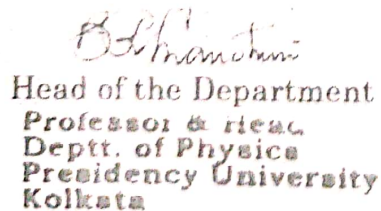 Head of the Department
Professor & Head
Deptt. of Physics
Presidency University
Kolkata